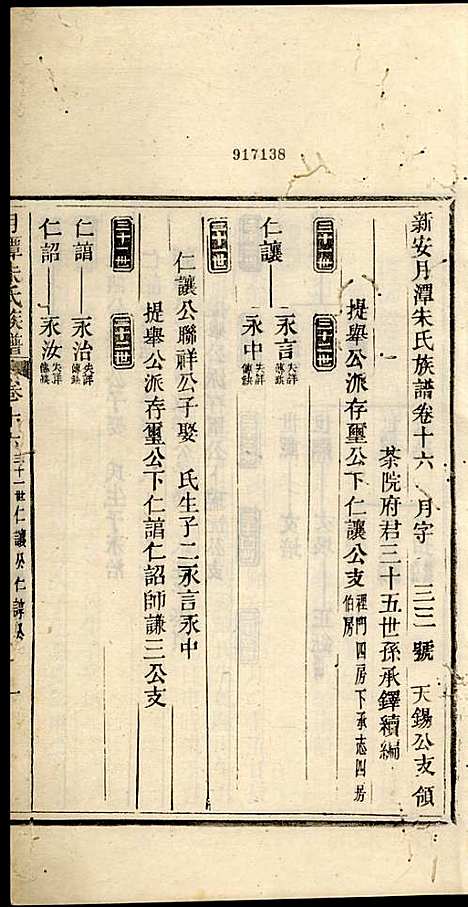 917138
新安月潭朱氏族譜卷十六 月字 三三 號 天錫公支領
茶院府君三十五世孫承鐸續編
提舉公派存壐公下仁讓公支 裡門四房下承志四房伯房
三十一世 三十二世
仁讓 永言 失詳傳缺
永中 失詳傳缺
三十一世
仁讓公聯祥公子娶 氏生子二永言永中
提舉公派存壐公下仁誯仁詔師謙三公支
三十一世 三十二世
仁誯 永治 失詳傳缺
仁詔 永汝 失詳傳缺
月潭朱氏族譜 卷十六 三十一世仁讓公仁諱公 一